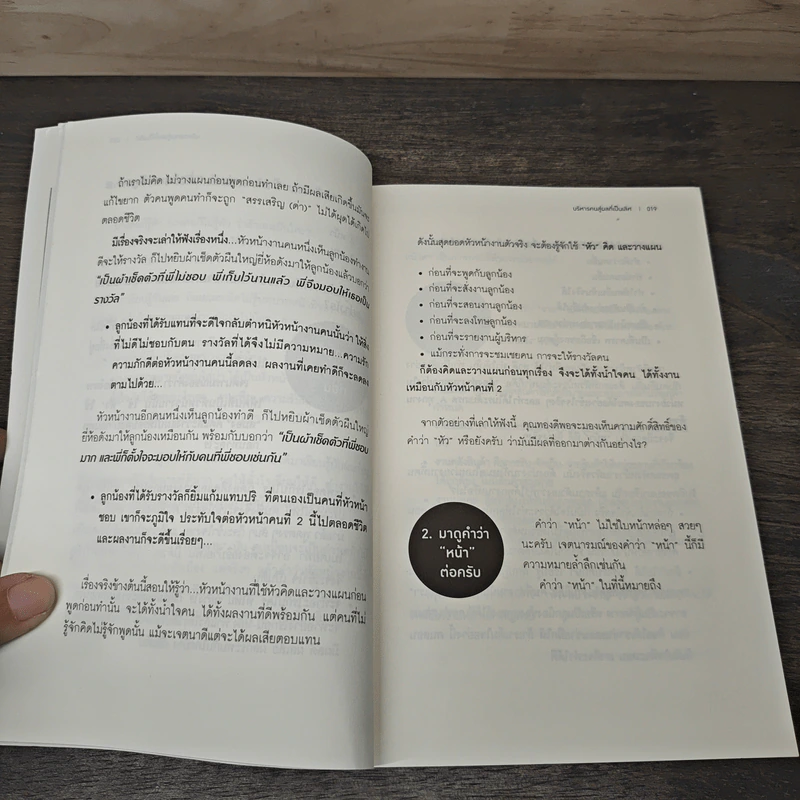 ถ้าเราไม่คิด ไม่วางแผนก่อนพูดก่อนทำเลย ถ้ามีผลเสียเกิดขึ้นมัน
แก้ไขยาก ตัวคนพูดคนทำก็จะถูก "สรรเสริญ (ด่า)" ไม่ได้ผุดได้เกิดไป
ตลอดชีวิต
มีเรื่องจริงจะเล่าให้ฟังเรื่องหนึ่ง...หัวหน้างานคนหนึ่งเห็นลูกน้องทำงาน
ดีจะให้รางวัล ก็ไปหยิบผ้าเช็ดตัวผืนใหญ่ยี่ห้อดังมาให้ลูกน้องแล้วบอกว่า
"เป็นผ้าเช็ดตัวที่พี่ไม่ชอบ พี่เก็บไว้นานแล้ว พี่จึงมอบให้เธอเป็น
รางวัล"
• ลูกน้องที่ได้รับแทนที่จะดีใจกลับตำหนิหัวหน้างานคนนั้นว่า ให้สิ่ง
ที่ไม่ดีไม่ชอบกับตน รางวัลที่ได้จึงไม่มีความหมาย...ความรัก
ความภักดีต่อหัวหน้างานคนนี้ลดลง ผลงานที่เคยทำดีก็จะลดลง
ตามไปด้วย...
หัวหน้างานอีกคนหนึ่งเห็นลูกน้องทำดี ก็ไปหยิบผ้าเช็ดตัวผืนใหญ่
ยี่ห้อดังมาให้ลูกน้องเหมือนกัน พร้อมกับบอกว่า "เป็นผ้าเช็ดตัวที่พี่ชอบ
มาก และพี่ก็ตั้งใจจะมอบให้กับคนที่พี่ชอบเช่นกัน"
• ลูกน้องที่ได้รับรางวัลก็ยิ้มแก้มแทบปริ ที่ตนเองเป็นคนที่หัวหน้า
ชอบ เขาก็จะภูมิใจ ประทับใจต่อหัวหน้าคนที่ 2 นี้ไปตลอดชีวิต
และผลงานก็จะดีขึ้นเรื่อยๆ...
เรื่องจริงข้างต้นนี้สอนให้รู้ว่า...หัวหน้างานที่ใช้หัวคิดและวางแผนก่อน
พูดก่อนทำนั้น จะได้ทั้งน้ำใจคน ได้ทั้งผลงานที่ดีพร้อมกัน แต่คนที่ไม่
รู้จักคิดไม่รู้จักพูดนั้น แม้จะเจตนาดีแต่จะได้ผลเสียตอบแทน
บริหารคนสู่ผลที่เป็นเลิศ | 019
ดังนั้นสุดยอดหัวหน้างานตัวจริง จะต้องรู้จักใช้ "หัว" คิด และวางแผน
• ก่อนที่จะพูดกับลูกน้อง
• ก่อนที่จะสั่งงานลูกน้อง
• ก่อนที่จะสอนงานลูกน้อง
• ก่อนที่จะลงโทษลูกน้อง
• ก่อนที่จะรายงานผู้บริหาร
• แม้กระทั่งการจะชมเชยคน การจะให้รางวัลคน
ก็ต้องคิดและวางแผนก่อนทุกเรื่อง จึงจะได้ทั้งน้ำใจคน ได้ทั้งงาน
เหมือนกับหัวหน้าคนที่ 2
จากตัวอย่างที่เล่าให้ฟังนี้ คุณทองดีพอจะมองเห็นความศักดิ์สิทธิ์ของ
คำว่า "หัว" หรือยังครับ ว่ามันมีผลที่ออกมาต่างกันอย่างไร?
2. มาดูคำว่า
"หน้า"
ต่อครับ
คำว่า "หน้า" ไม่ใช่ใบหน้าหล่อๆ สวยๆ
นะครับ เจตนารมณ์ของคำว่า "หน้า" นี้ก็มี
ความหมายล้ำลึกเช่นกัน
คำว่า "หน้า" ในที่นี้หมายถึง